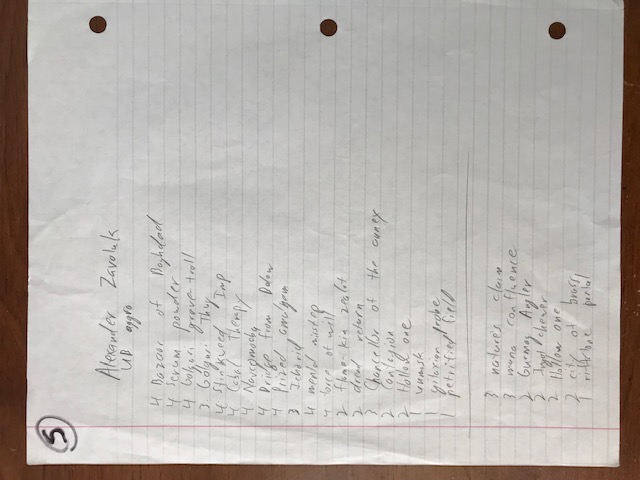 5
Alexander Zavoluk
UB aggro
4 Bazaar of Baghdad
4 Serum powder
4 Golgari grave-troll
3 Golgari Thug
4 Stinkweed Imp
4 Cabal Therapy
4 Narcomoeba
4 Bridge from Below
4 Prized amalgam
3 Ichorid
4 mental misstep
4 force of will
2 flame-kin zealot
2 dread return
3 Chancellor of the annex
2 Contagion
2 Hollow one
1 unmask
1 gitaxian probe
1 petrified field
3 nature's claim
3 mana confluence
2 Gurmag Angler
2 Ingot chewer
2 Hollow one
2 city of brass
1 riftstone portal